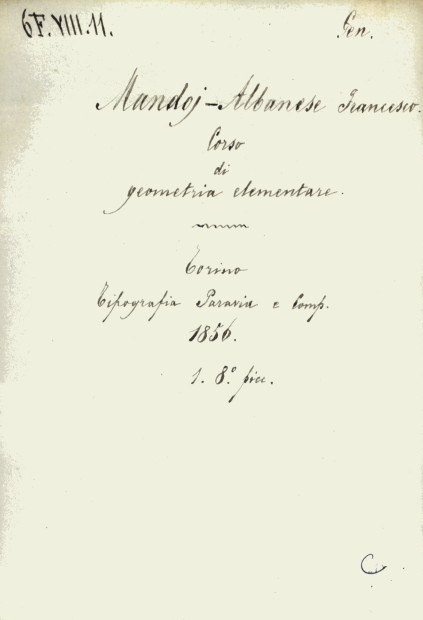 6F.VIII.11. Gen.
Mandoj-Albanese Francesco.
Corso
di
geometria elementare.
Torino
Tipografia Paravia e Comp.
1856.
1. 8.° picc.
C